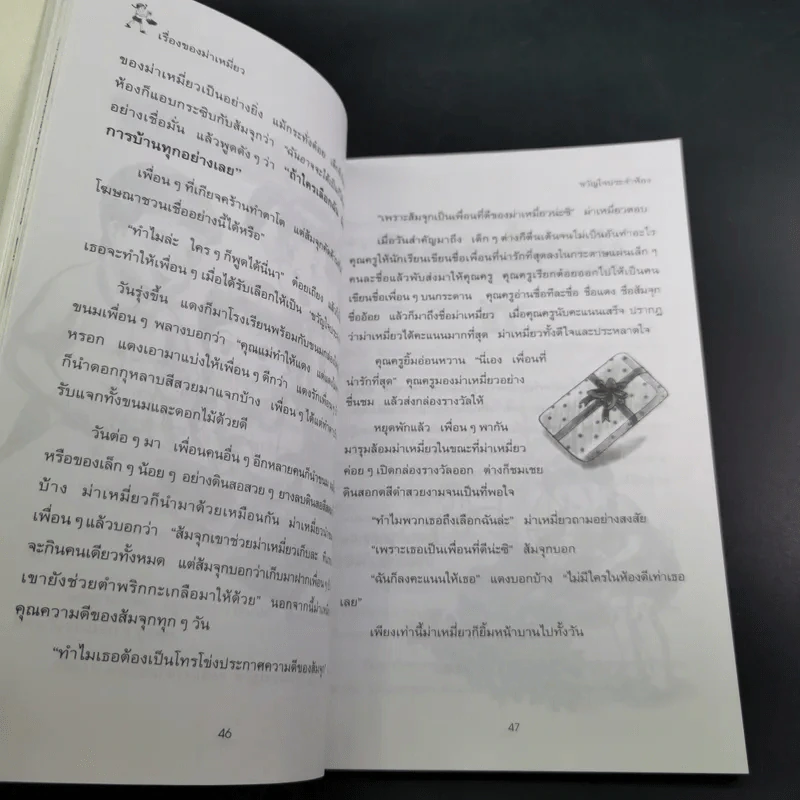 เรื่องของม่าเหมี่ยว
ของม่าเหมี่ยวเป็นอย่างยิ่ง แม้กระทั่งต้อย
ห้องก็แอบกระซิบกับส้มจุกว่า "ฉันอาจจะได้เป็น
อย่างเชื่อมั่น แล้วพูดดังๆ ว่า "ถ้าใครเลือกฉัน
การบ้านทุกอย่างเลย"
เพื่อนๆ ที่เกียจคร้านทำตาโต แต่ส้มจุก
โฆษณาชวนเชื่ออย่างนี้ได้หรือ"
"ทำไมล่ะ ใครๆ ก็พูดได้นี่นา" ต้อยเถียง
เธอจะทำให้เพื่อนๆ เมื่อได้รับเลือกให้เป็น
วันรุ่งขึ้น แดงก็มาโรงเรียนพร้อมกับขนม
ขนมเพื่อนๆ พลางบอกว่า "คุณแม่ทำให้แดง
หรอก แดงเอามาแบ่งให้เพื่อนๆ ดีกว่า แดงรักเพื่อนๆ
ก็นำดอกกุหลาบสีสวยมาแจกบ้าง เพื่อนๆ ได้แต่
รับแจกทั้งขนมและดอกไม้ด้วยดี
วันต่อๆ มา เพื่อนคนอื่นๆ อีกหลายคนก็นำขนม
หรือของเล็กๆ น้อยๆ อย่างดินสอสวยๆ ยางลบดินสอ
บ้าง ม่าเหมี่ยวก็นำมาด้วยเหมือนกัน ม่าเหมี่ยว
เพื่อนๆ แล้วบอกว่า "ส้มจุกเขาช่วยม่าเหมี่ยวเก็บละ
จะกินคนเดียวทั้งหมด แต่ส้มจุกบอกว่าเก็บมาฝากเพื่อนๆ
เขายังช่วยตำพริกกะเกลือมาให้ด้วย" นอกจากนี้
คุณความดีของส้มจุกทุกๆ วัน
"ทำไมเธอต้องเป็นโทรโข่งประกาศความดีของส้มจุก
46
ขวัญใจประจำห้อง
"เพราะส้มจุกเป็นเพื่อนที่ดีของม่าเหมี่ยวน่ะซิ" ม่าเหมี่ยวตอบ
เมื่อวันสำคัญมาถึง เด็กๆ ต่างก็ตื่นเต้นจนไม่เป็นอันทำอะไร
คุณครูให้นักเรียนเขียนชื่อเพื่อนที่น่ารักที่สุดลงในกระดาษแผ่นเล็กๆ
คนละชื่อแล้วพับส่งมาให้คุณครู คุณครูเรียกต้อยออกไปให้เป็นคน
เขียนชื่อเพื่อนๆ บนกระดาน คุณครูอ่านชื่อทีละชื่อ ชื่อแดง ชื่อส้มจุก
ชื่ออ้อย แล้วก็มาถึงชื่อม่าเหมี่ยว เมื่อคุณครูนับคะแนนเสร็จ ปรากฏ
ว่าม่าเหมี่ยวได้คะแนนมากที่สุด ม่าเหมี่ยวทั้งดีใจและประหลาดใจ
คุณครูยิ้มอ่อนหวาน "นี่เอง เพื่อนที่
น่ารักที่สุด" คุณครูมองม่าเหมี่ยวอย่าง
ชื่นชม แล้วส่งกล่องรางวัลให้
หยุดพักแล้ว เพื่อนๆ พากัน
มารุมล้อมม่าเหมี่ยวในขณะที่ม่าเหมี่ยว
ค่อยๆ เปิดกล่องรางวัลออก ต่างก็ชมเชย
ดินสอกดสีดำสวยงามจนเป็นที่พอใจ
"ทำไมพวกเธอถึงเลือกฉันล่ะ" ม่าเหมี่ยวถามอย่างสงสัย
"เพราะเธอเป็นเพื่อนที่ดีน่ะซิ" ส้มจุกบอก
"ฉันก็ลงคะแนนให้เธอ" แดงบอกบ้าง "ไม่มีใครในห้องดีเท่าเธอ
เลย"
เพียงเท่านี้ม่าเหมี่ยวก็ยิ้มหน้าบานไปทั้งวัน
47